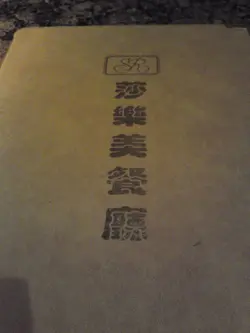 莎樂美餐廳